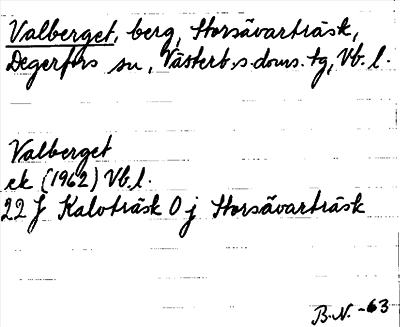 Valberget, berg, Storsävarträsk,
Degerfors sn, Västerb. s. doms. tg, Vb. l.
Valberget
ek (1962) Vb. l.
22 J Kalvträsk 0 j Storsävarträsk
B.N. -63